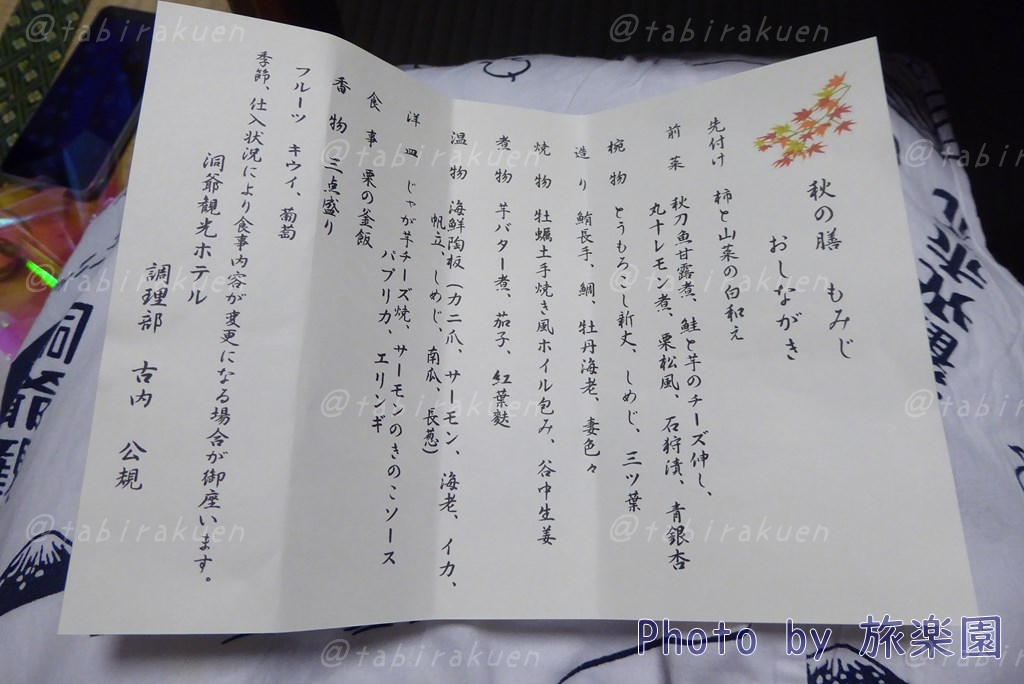 秋の膳 もみじ
おしながき
先付け 柿と山菜の白和え
前菜 秋刀魚甘露煮、鮭と芋のチーズ伸し、
丸十レモン煮、栗松風、石狩漬、青銀杏
椀物 とうもろこし新丈、しめじ、三ツ葉
造り 鮪長手、鯛、牡丹海老、妻色々
焼物 牡蠣土手焼き風ホイル包み、谷中生姜
煮物 芋バター煮、茄子、紅葉麩
温物 海鮮陶板(カニ爪、サーモン、海老、イカ、
帆立、しめじ、南瓜、長葱)
洋皿 じゃが芋チーズ焼、サーモンのきのこソース
パプリカ、エリンギ
食事 栗の釜飯
香物 三点盛り
フルーツ キウイ、葡萄
季節、仕入状況により食事内容が変更になる場合が御座います。
洞爺観光ホテル
調理部 古内 公規
@tabirakuen
@tabirakuen
@tabirakuen
@tabirakuen
@tabirakuen
@tabirakuen
@tabirakuen
@tabirakuen
@tabirakuen
@tabirakuen
Photo by 旅楽園